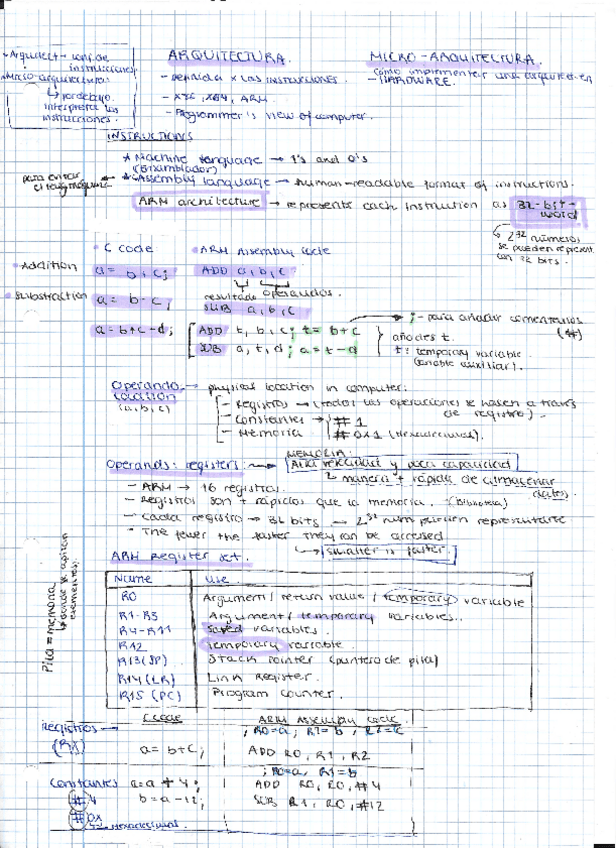 ARQUITECTURA.
MICRO-ARQUITECTURA.
- definida x las instrucciones.
- x86, x64, ARM.
- Programmer's view of computer.
- como implementar una arquitect. en HARDWARE.
por debajo
interpreta las
instrucciones.
INSTRUCTIONS
* Machine language → 1's and 0's
(Ensamblador)
* Assembly language → human-readable format of instructions.
para evitar
ARM architecture → represents each instruction as 32-bit-word
2^32 números
se pueden represent
con 32 bits.
• C code • ARM Assembly code
• Addition a = b + c; ADD a, b, c
resultado operandos.
• Substraction a = b - c; SUB a, b, c
; → para añadir comentarios
a = b + c - d; ADD t, b, c; t = b + c
SUB a, t, d; a = t - d
añades t.
t: temporary variable
(variable auxiliar).
Operando → physical location in computer:
location
(a, b, c)
- Registros → (todas las operaciones se hacen a través
de registro).
- Constantes → #1
- Memoria #0x1 (Hexadecimal).
MEMORIA
Operands: registers → Alta velocidad y poca capacidad
manera + rápida de almacenar
datos.
- ARM → 16 registros.
- Registros son + rápidos que la memoria. (biblioteca)
- Cada registro → 32 bits → 2^32 num pueden representarte
• The fewer the faster they can be accessed
smaller is faster.
ARM Register set.
Pila = memoria
donde se apilan
elementos.
Name Use
R0 Argument / return value / temporary variable
R1-R3 Argument / temporary variables.
R4-R11 Saved variables.
R12 Temporary variable.
R13 (SP) Stack pointer (puntero de pila)
R14 (LR) Link Register.
R15 (PC) Program counter.
C code ARM Assembly code
Registros → ; R0=a, R1=b, R2=c
(Rx) a = b + c; ADD R0, R1, R2
; R0=a, R1=b
Constantes a = a + 4; ADD R0, R0, #4
#4 b = a - 12; SUB R1, R0, #12
#0x
Hexadecimal.